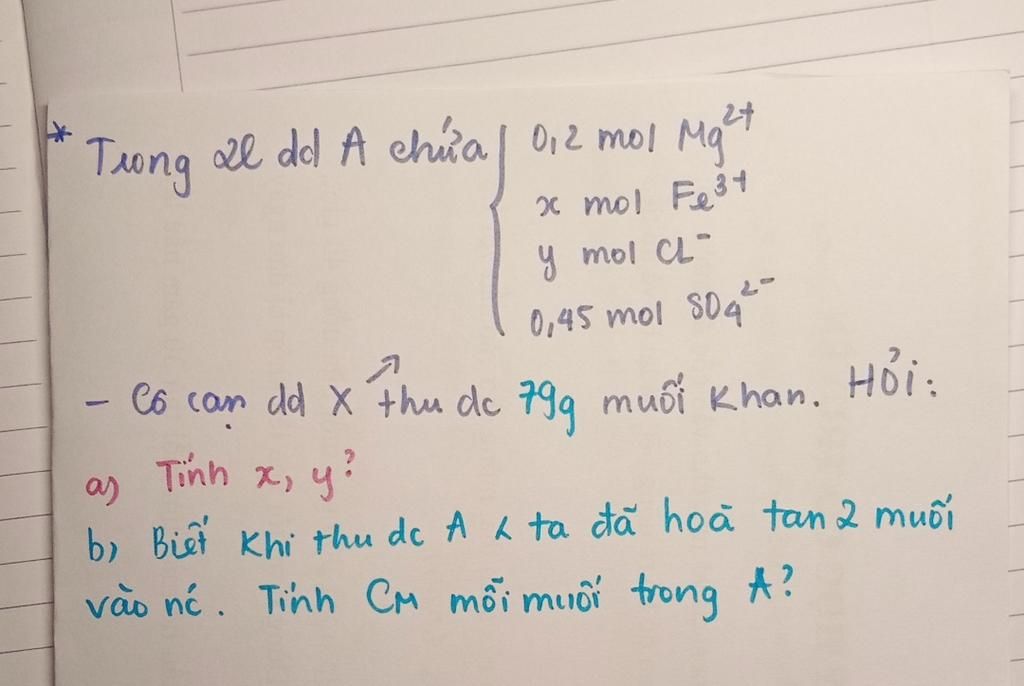 * Trong 2l dd A chứa { 0,2 mol Mg²⁺
x mol Fe³⁺
y mol Cl⁻
0,45 mol SO₄²⁻
- Cô cạn dd X ↗ thu dc 79g muối khan. Hỏi:
a) Tính x, y?
b) Biết khi thu dc A < ta đã hoà tan 2 muối
vào nć. Tính CM mỗi muối trong A?